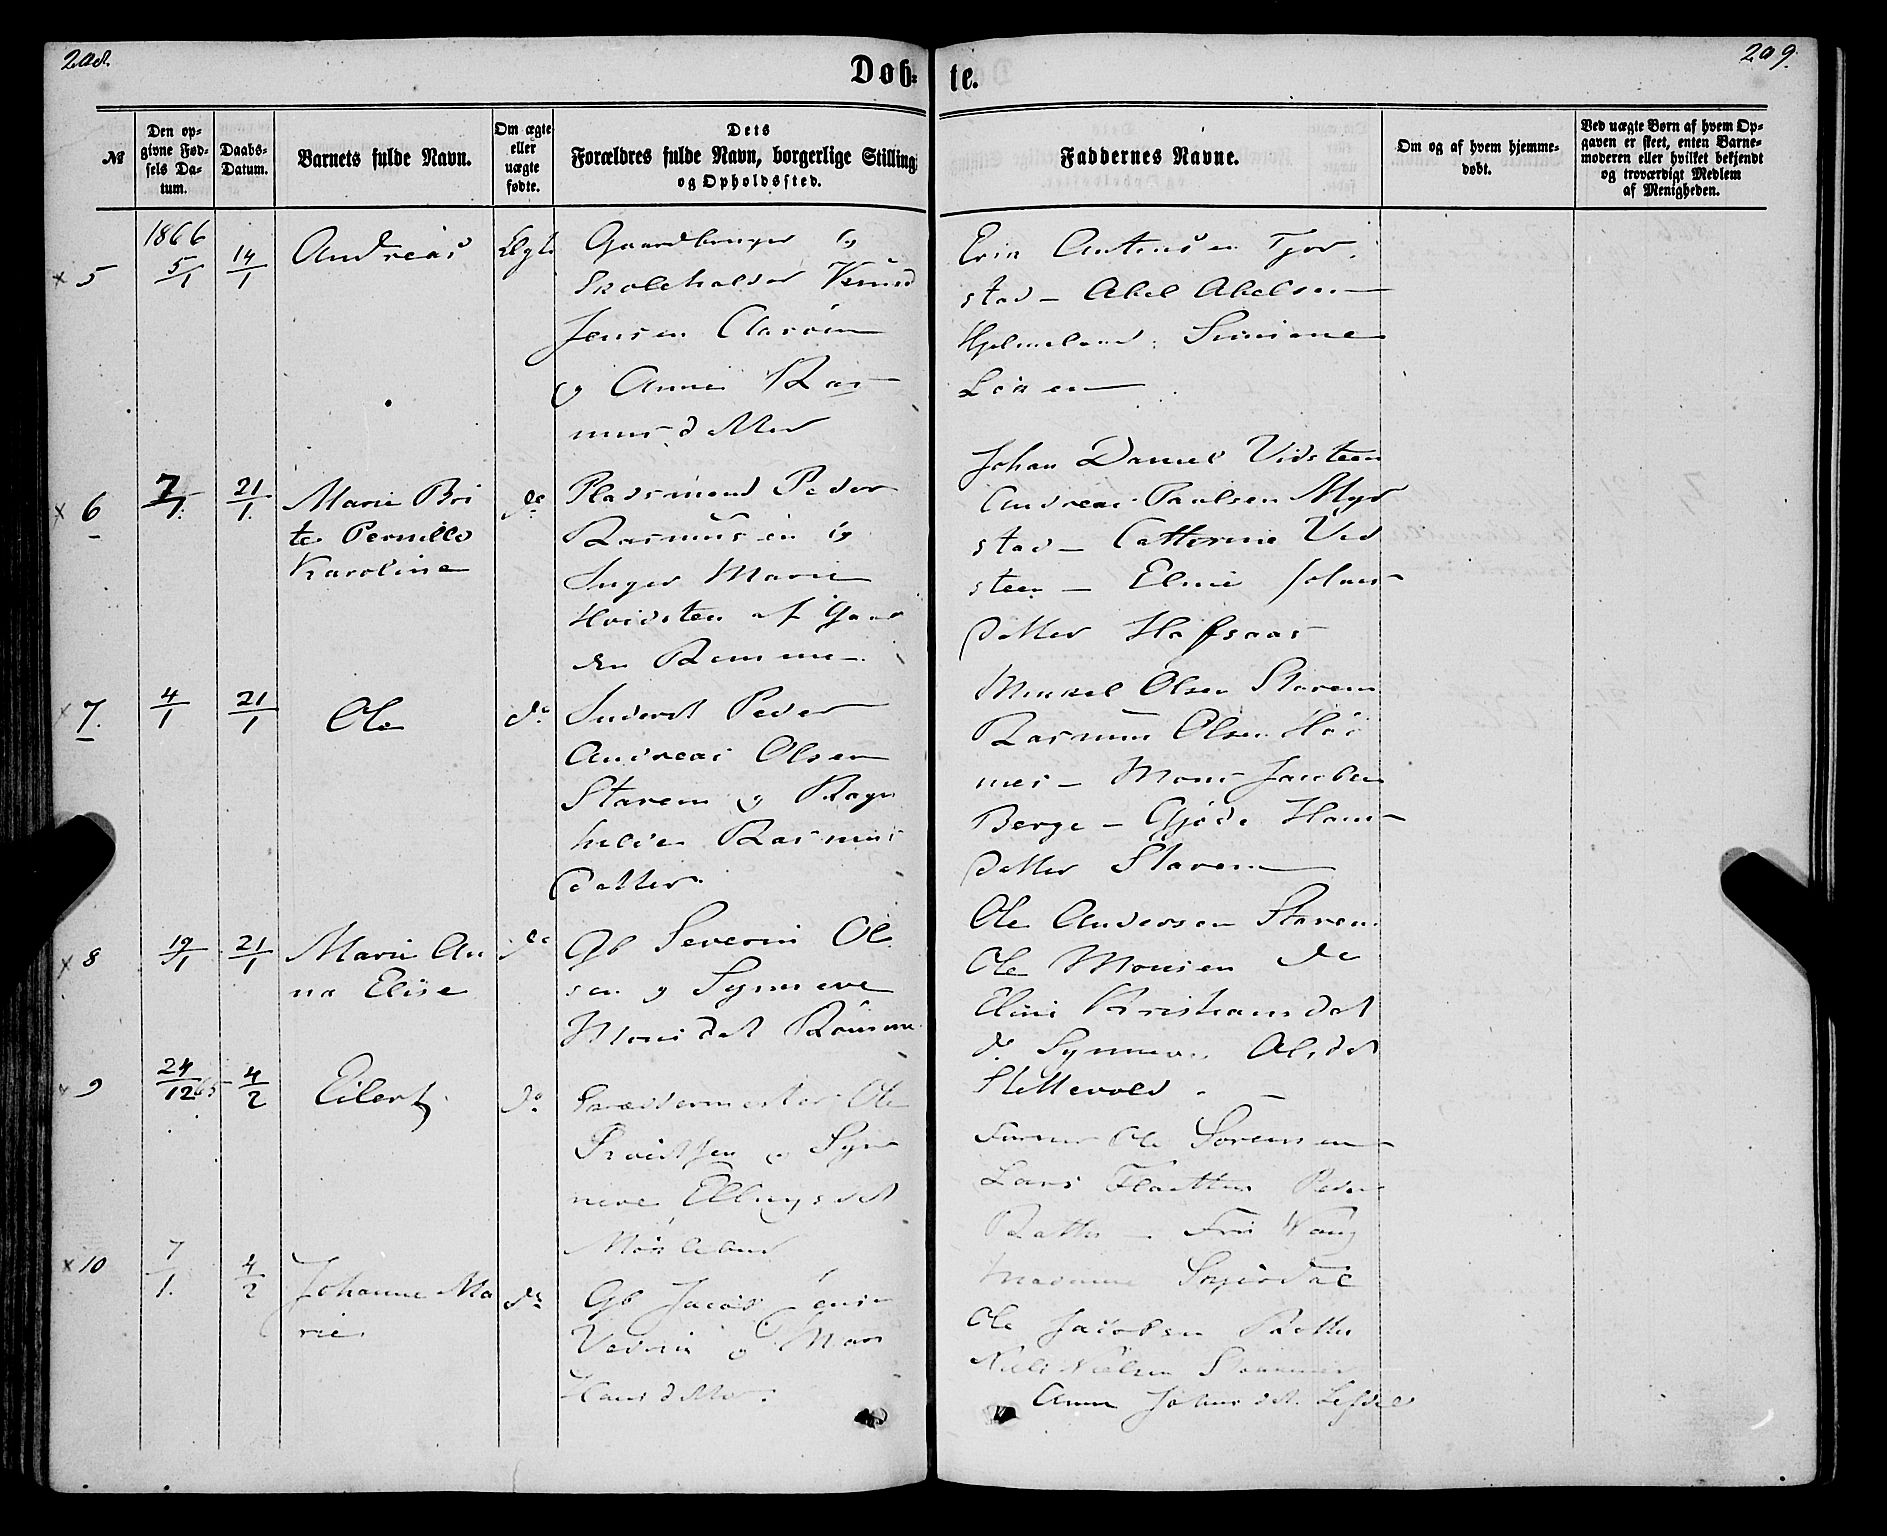 208.
209.
Døb-
te.
№
Den op-
givne Fød-
sels Da-
tum.
Daabs-
Datum.
Barnets fulde Navn.
Om ægte
eller
uægte
fødte.
Dets
Forældres fulde Navn, borgerlige Stilling
og Opholdssted.
Faddernes Navne.
Om og af hvem hjemme-
døbt.
Ved uægte Børn af hvem Op-
gaven er skeet, enten Barne-
moderen eller hvilket bekjendt
og troværdigt Medlem
af Menigheden.
1866
x 5
5/1
14/1
Andreas
Ægte
Gaardbruger og
Skoleholder Knud
Jensen
og Anne Ras
musdatter
Erik
stad - Abel Abelsen
Hjelmeland. Simine
x 6
7/1.
21/1.
Marie Bri
te Pernille
Karoline
do
Pladsmand Peder
Rasmussen og
Inger Marie
Hvidsten af Gaar
den Remme.
Johan Daniel Vidsteen
Andreas Paulsen Myr
stad - Cathrine Vid
steen - Eline Johans
datter
x 7.
4/1
21/1
Ole
do
Inderst Peder
Andreas Olsen
Starem og Ragn
hilde Rasmus
datter.
Mikkel Olsen Starem
Rasmus Olsen Høi
nes - Mons Jacobsen
Berge - Gjøde Hans
datter Starem
x 8
19/1
21/1
Marie An
na Elise
do
Gb Severin Ol
sen og Synneve
Monsdat
Ole Andersen Starem
Ole Monsen do
Eline Kristiansdat
do Synneve Olsdt
x 9
24/12 65
4/2
Eilert
do
Skræddermester Ole
og Syn
neve Ellingsdat
Ole Sørensen
Lars Peder
Fru Wang
x 10
7/1.
4/2
Johanne Ma
rie
do
Gb Jacob Jensen
og Mari
Hansdatter.
Ole Jacobsen
Niels Nielsen
Anne Johansdt.